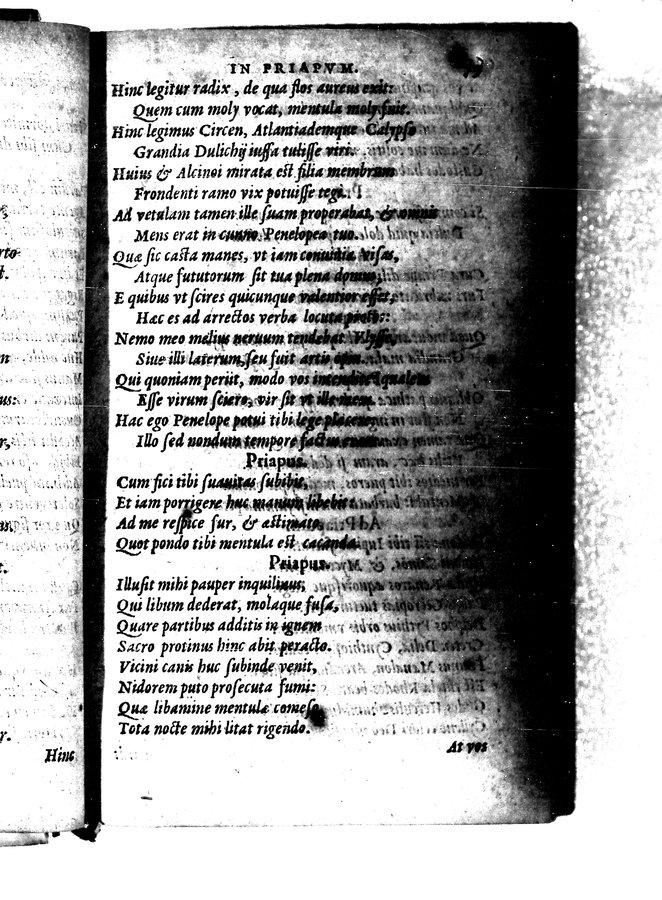 IN PRIAPVM.
Hinc legitur radix, de qua flos aureus exit:
Quem cum moly vocat, mentula moly fuit.
Hinc legimus Circen, Atlantiademque Calypso
Grandia Dulichij iussa tulisse viri.
Huius & Alcinoi mirata est filia membrum
Frondenti ramo vix potuisse tegi.
Ad vetulam tamen ille suam properabat, & omnis
Mens erat in cunno Penelopea tuo.
Quæ sic casta manes, vt iam conuiuia visas,
Atque fututorum sit tua plena domus.
E quibus vt scires quicunque valentior esset,
Hæc es ad arrectos verba locuta procos:
Nemo meo melius neruum tendebat Vlysse,
Siue illi laterum, seu fuit artis opus.
Qui quoniam periit, modo vos intendite: qualem
Esse virum sciero, vir sit vt ille meus.
Hac ego Penelope potui tibi lege placere,
Illo sed nondum tempore factus eram.
Priapus.
Cum fici tibi suauitas subibit,
Et iam porrigere huc manum libebit:
Ad me respice fur, & æstimato,
Quot pondo tibi mentula est cacanda.
Priapus.
Illusit mihi pauper inquilinus,
Qui libum dederat, molaque fusa,
Quare partibus additis in ignem
Sacro protinus hinc abit peracto.
Vicini canis huc subinde venit,
Nidorem puto prosecuta fumi:
Quæ libamine mentulæ comeso
Tota nocte mihi litat rigendo.
At vos
Hinc